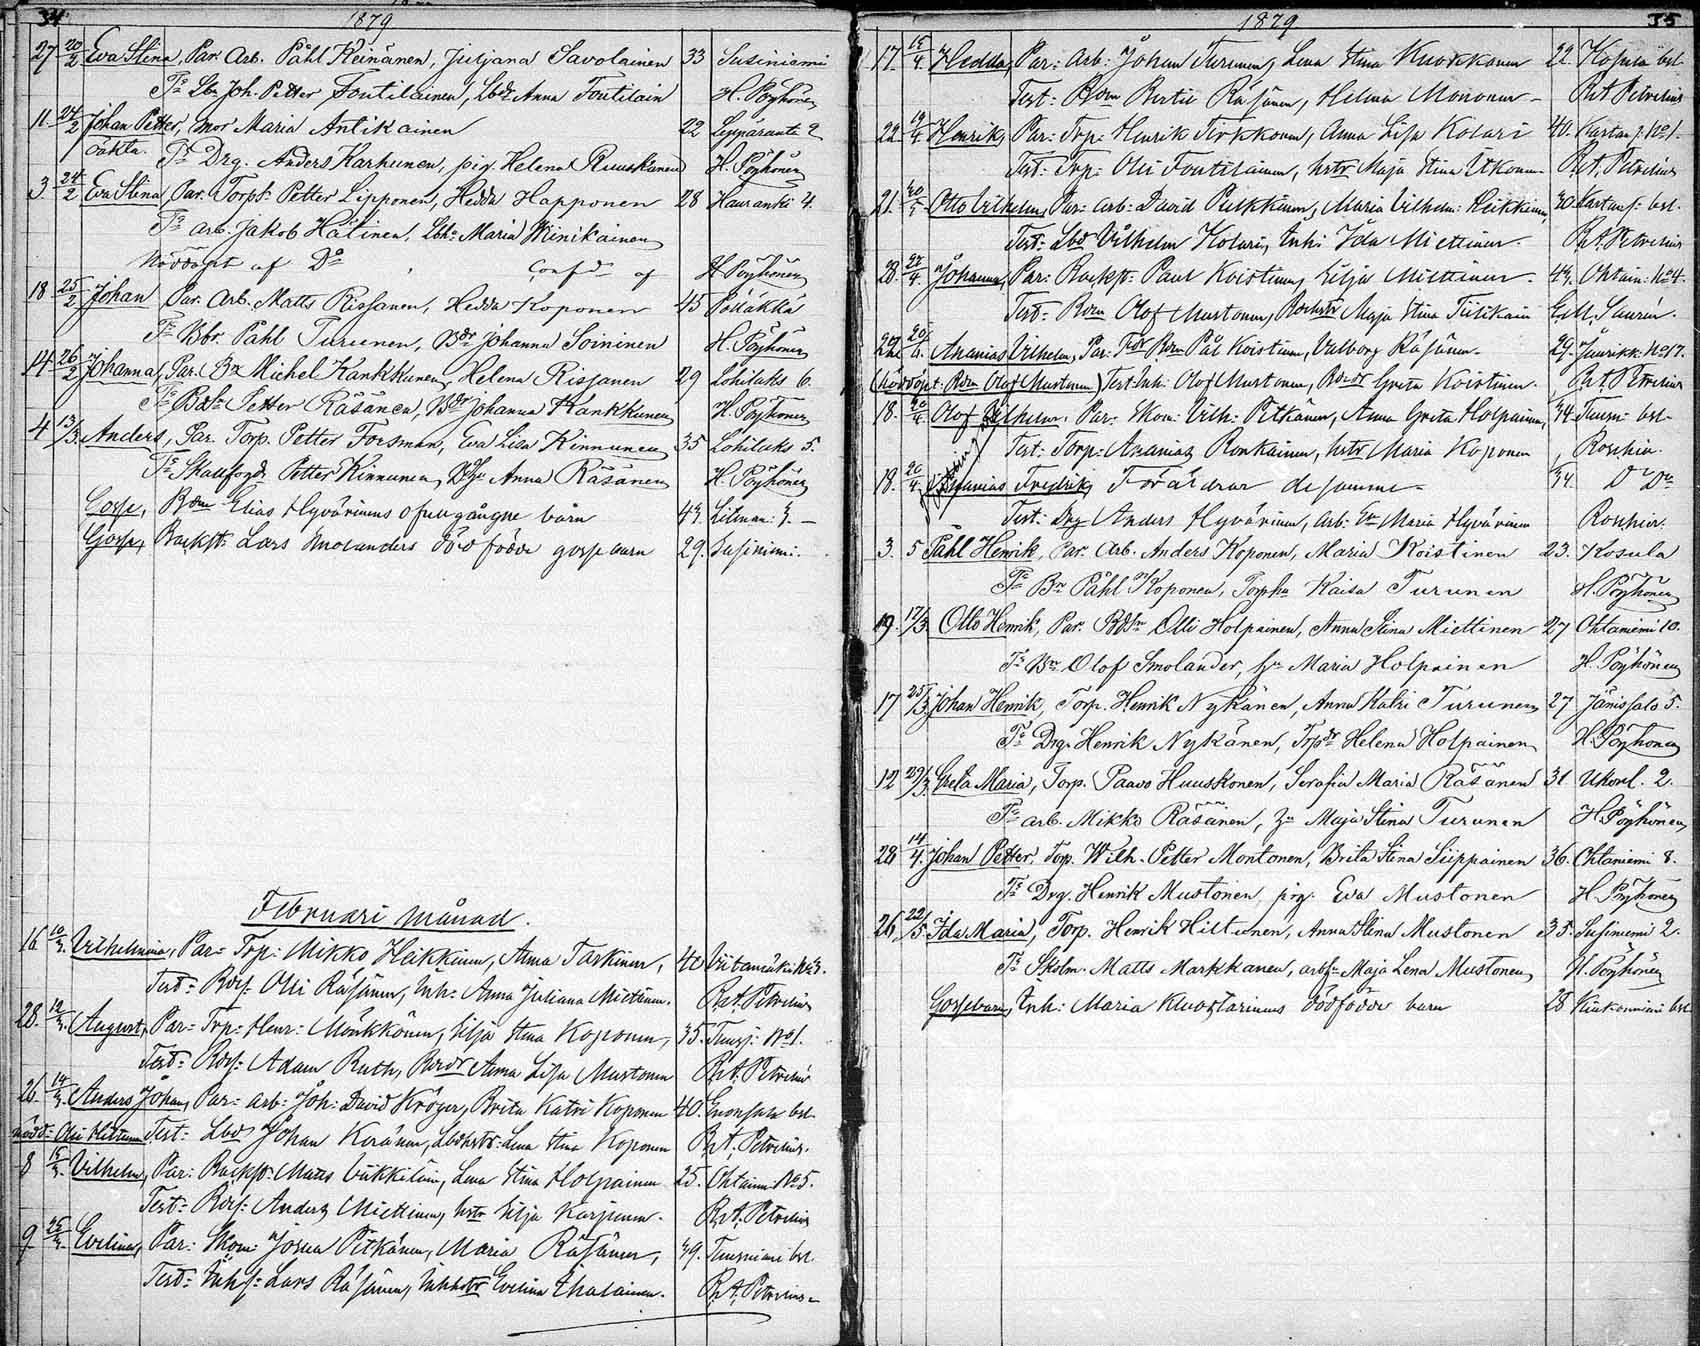 34
1879
27 20/2 Eva Stina, Par. Arb. Påhl Keinänen, Juljana Savolainen 33 Susiniemi
Ts Lbr Joh. Petter Toutilainen, Lbdr Anna Toutilain H. Pöyhönen
11 24/2 Johan Petter, mor Maria Antikainen 22 Leppäranta 2
oäkta. Ts Drg. Anders Karhunen, pig. Helena Ruuskanen H. Pöyhönen
3. 24/2 Eva Stina, Par. Torp. Petter Lipponen, Hedda Happonen 28 Hauranki 4.
Ts arb. Jakob Hätinen, Maria Minikainen
Nöddöpt af Do Confd. af H Pöyhönen
18 25/2 Johan Par. Arb. Matts Rissanen, Hedda Koponen 45
Ts Bbr. Påhl Turunen, Bdr Johanna Soininen H. Pöyhönen
14 26/2 Johanna, Par. Michel Kankkunen, Helena Rissanen 29 Lohilaks 6.
Ts Petter Räsänen, Bdr Johanna Kankkunen H. Pöyhönen
4 13/3 Anders, Par. Torp. Petter Forsman, Eva Lisa Kinnunen 35 Lohilaks 5.
Ts Skallfogd. Petter Kinnunen, Anna Räsänen H. Pöyhönen
Gosse, Bdm Elias Hyvärinens ofullgångne barn 43.
Gosse, Backst. Lars Smolanders död födde gosse barn 29. Susiniemi.
Februari månad.
16 Vilhelmina, Par: Trp: Mikko Heikkinen, Anna Taskinen, 40
Test: Olli Räsänen, Inh: Anna Juliana Miettinen. R. A. Petrelius
28. August, Par: Trp: Henr: Mönkkönen, Silja Stina Koponen, 35. No 1.
Test: Adam Ruth, Anna Lisa Mustonen R. A. Petrelius
26. 14 Anders Johan, Par: Arb: Joh: David Kröger, Brita Katri Koponen 40.
nödd: Olli Test: Lbd Johan Keränen, Lena Stina Koponen R. A. Petrelius.
8 15 Vilhelm, Par: Backst: Matts Lena Stina Holpainen 25. Ohtaini No 5.
Test: Anders Miettinen, hstr Silja Karjunen. R. A. Petrelius
9. 25 Evelina, Par: Josua Pitkänen, Maria Räsänen, 39.
Test: Lars Räsänen, Evelina R. A. Petrelius
1879
35
17. 15/4 Hedda, Par: Arb: Johan Turunen, Lena Stina 22. Kosula
Test: Bdm Bertil Räsänen, Helena Mononen R A Petrelius
22. 19/4 Henrik, Par: Trp: Henrik Tirkkonen, Anna Lisa Kolari 40. No 1.
Test: Trp: Olli Toutilainen, hstr Maja Stina Itkonen R. A. Petrelius
21. 20 Otto Vilhelm, Par: Arb: David Pulkkinen, Maria Vilhelm: Heikkinen, 30.
Test: Lbd Vilhelm Kolari, Inh: Ida Miettinen. R. A. Petrelius
28 27/4 Johanna, Par: Backst: Paul Koistinen, Silja Miettinen. 43. Ohtain: No 4.
Test: Bdm Olof Mustonen, Maja Stina Tiitikain
Ananias Vilhelm, Par: Bdm Pål Koistinen, Valborg Räsänen. 29. Jänrikk: No 17.
(Nöddöpt: Bdm Olof Mustonen) Test: Inh: Olof Mustonen, Greta Koistinen. R. A. Petrelius
18. Olof Vilhelm, Par. Vilh: Pitkänen, Anna Greta Holpainen, 34.
Test: Torp: Ananias Ronkainen, hstr Maria Koponen Roschier.
18. 20/4 Ananias Fredrik, Föräldrar desamme 34. Do Do
Test: Drg Anders Hyvärinen, arb: Maria Hyvärinen Roschier.
3. 5 Påhl Henrik, Par. Arb. Anders Koponen, Maria Koistinen 23. Kosula
Ts Påhl Koponen, Kaisa Turunen H. Pöyhönen
19. 17/3. Otto Henrik, Par. Olli Holpainen, Anna Stina Miettinen 27 Ohtaniemi 10.
Ts Olof Smolander, Maria Holpainen H. Pöyhönen
17 25/3 Johan Henrik, Torp. Henrik Nykänen, Anna Katri Turunen 27 Jänissalo 5.
Ts Drg. Henrik Nykänen, Helena Holpainen H. Pöyhönen
12 29/3. Greta Maria, Torp. Paavo Huuskonen, Serafia Maria Räsänen 31. Ukonl. 2.
Ts arb. Mikko Räsänen, Maja Stina Turunen H. Pöyhönen
28 14/4. Johan Petter, Torp. Wilh. Petter Montonen, Brita Stina Siippainen 36. Ohtaniemi 8.
Ts Drg. Henrik Mustonen, pig. Eva Mustonen H. Pöyhönen
26 22/5 Ida Maria, Torp. Henrik Hiltunen, Anna Stina Mustonen 35. Susiniemi 2.
Ts Matts Markkanen, Maja Lena Mustonen H. Pöyhönen
Gossebarn, Inh: Maria dödfödde barn 28